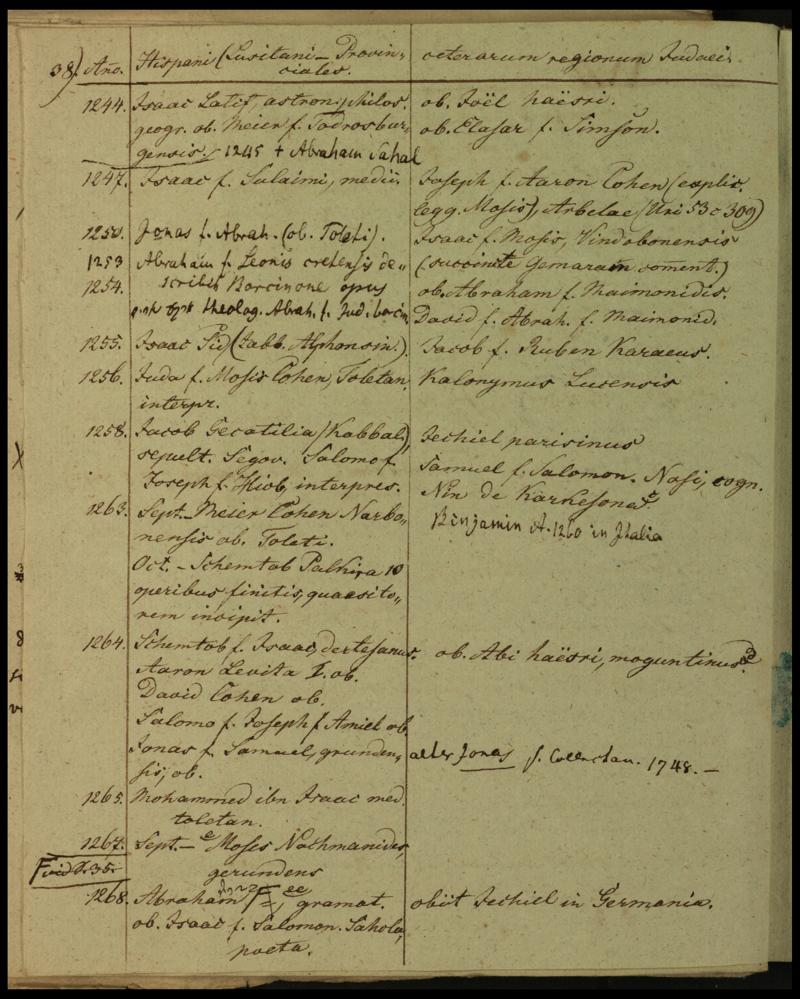 38) Año. Hispani (Lusitani – Provin„ ceterarum regionum Judaei.
ciales.
1244. Isaac Latif, astron. philos. ob. Joël haësri.
geogr. ob. Meier f. Todrosbur„ ob. Elasar f. Simson.
gensis. 1245 + Abraham Sahal
1247. Isaac f. Sulaimi, medic. Joseph f. Aaron Cohen (explic.
legg. Mosis), Arbelae (Uri 53 c 309)
1250. Jonas f. Abrah. (ob. Toleti). Isaac f. Mosis, Vindobonensis
1253 Abraham f. Leonis cretensis de„ (succincte Gemaram coment.)
1254. scribit Barcinone opus ob. Abraham f. Maimonidis.
theolog. Abrah. f. Jud. barcin. David f. Abrah. f. Maimonid.
1255. Isaac Sid (Tabb. Alphonsin.). Jacob f. Ruben Karaeus.
1256. Juda f. Mosis Cohen, Toletan. Kalonymus Lucensis
interpr.
1258. Jacob Gecatilia (Kabbal.) Jechiel parisinus
sepult. Segov. Salomo f. Samuel f. Salomon. Nasi, cogn.
Joseph f. Hiob, interpres. Nin de Karkesona
1263. Sept. – Meier Cohen Narbo„ Binjamin A. 1260 in Italia
nensis ob. Toleti.
Oct. – Schemtob Palkira 10
operibus finitis, quaesito„
rem incipit.
1264. Schemtob f. Isaac, dertesanus. ob. Abi haësri, moguntinus.
Aaron Levita I. ob.
David Cohen ob.
Salomo f. Joseph f. Amiel ob.
Jonas f. Samuel, grunden„ alter Jonas 1748. –
sis, ob.
1265. Mohammed ibn Isaac med.
toletan.
1267. Sept. – Moses Nachmanides,
35. gerundens
1268. Abraham gramat. obiit Jechiel in Germania.
ob. Isaac f. Salomon. Sahola,
poeta.